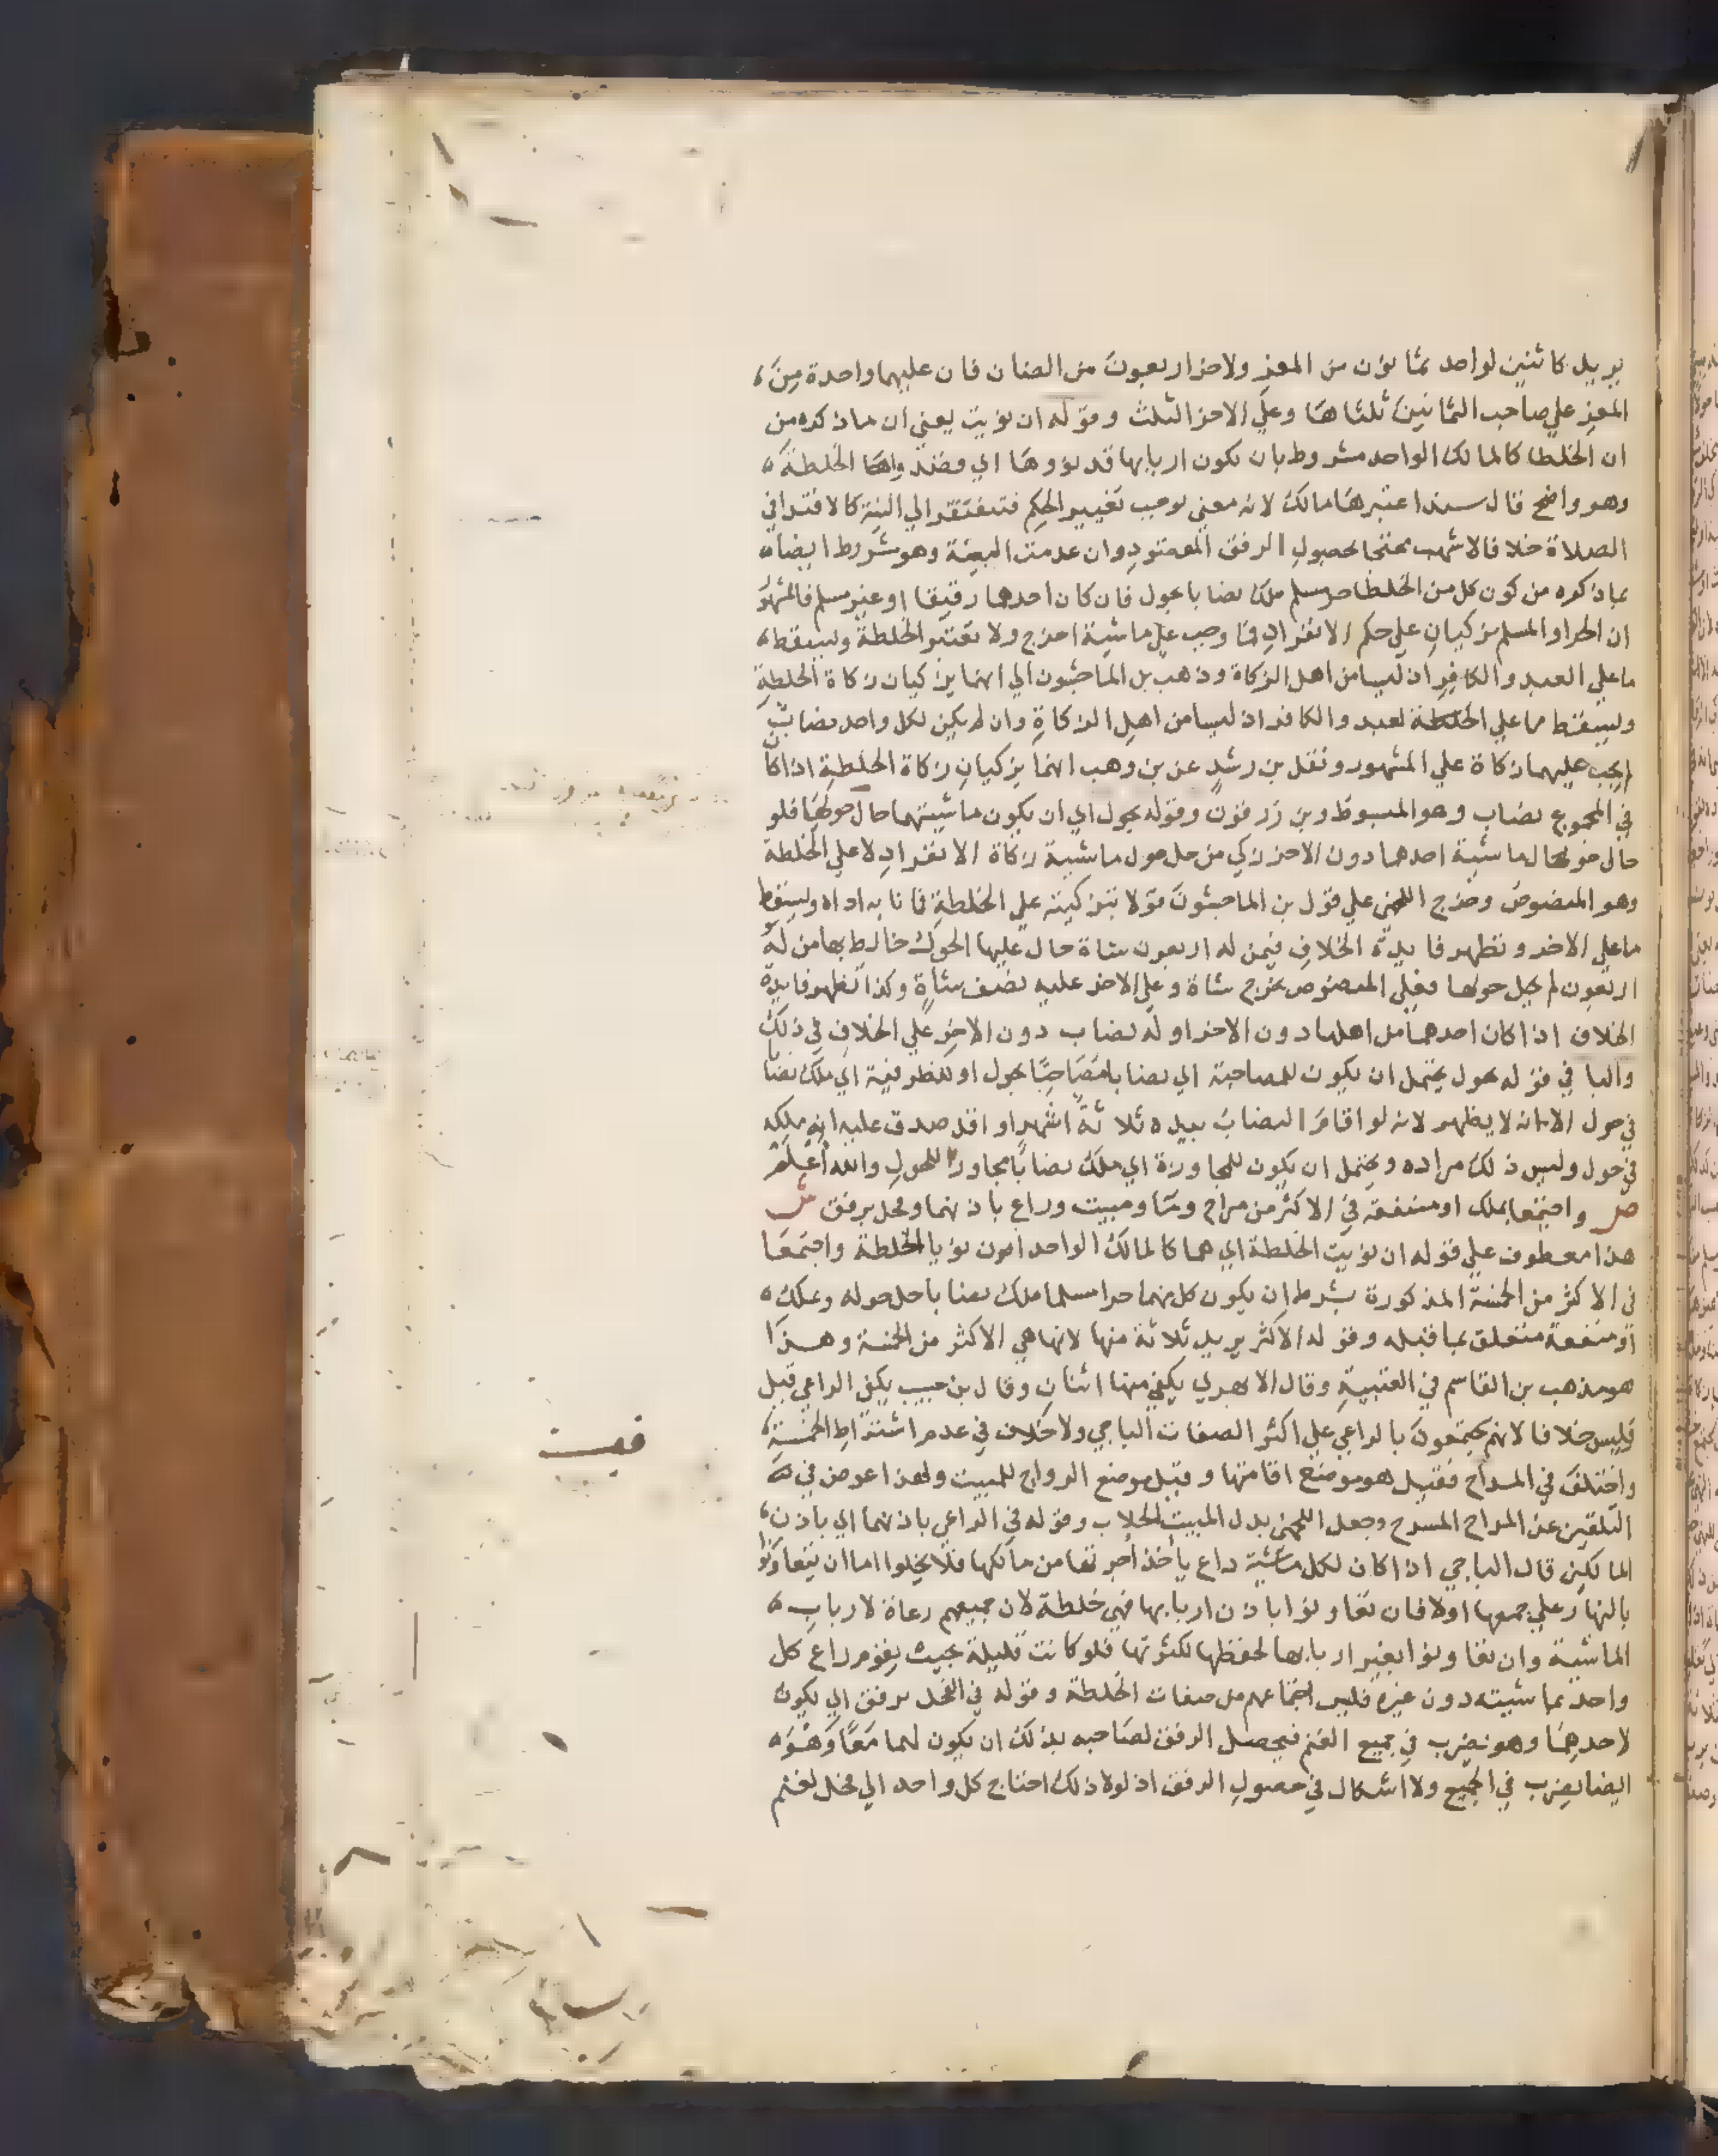 يريد كاثنين لواحد ثمانون من المعز ولاخر اربعون من الضان فان عليهما واحدة من
المعز علي صاحب الثمانين ثلثاها وعلي الاخر الثلث وقوله ان نويت يعني ان ما ذكره من
ان الخلطا كالمالك الواحد مشروط بان يكون اربابها قد نووها اي وقصدوا الخلطة
وهو واضح قال سند اعتبرها مالك لانه معني يوجب تغيير الحكم فتفتقر الي النية كالاقتدا في
الصلاة خلافا لاشهب محتجا بحصول الرفق المقصود وان عدمت النية وهو مشروط ايضا
بما ذكره من كون كل من الخلطا حر مسلم ملك نصابا بحول فان كان احدهما رقيقا او غير مسلم فالمشهور
ان الحر او المسلم يزكيان علي حكم الانفراد فما وجب علي ماشية اخرج ولا تعتبر الخلطة ويسقط
ما علي العبد والكافر اذ ليسا من اهل الزكاة وذهب بن الماجشون الي انهما يزكيان زكاة الخلطة
ويسقط ما علي الخلطة لعبد والكافر اذ ليسا من اهل الزكاة وان لم يكن لكل واحد نصاب
لم يجب عليهما زكاة علي المشهور ونقل بن رشد عن بن وهب انهما يزكيان زكاة الخلطة اذا كان
في المجموع نصاب وهو المبسوط وبن زرقون وقوله بحول اي ان يكون ماشيتهما حال حولها فلو
حال حولها لماشية احدهما دون الاخر زكي من حل حول ماشية زكاة الانفراد لا علي الخلطة
وهو المنصوص وخرج اللخمي علي قول بن الماجشون قولا بتزكيته علي الخلطة فانا به اداه ويسقط
ما علي الاخر وتظهر فايدة الخلاف فيمن له اربعون شاة حال عليها الحول خالط بها من له
اربعون لم يحل حولها فعلي المنصوص يخرج شاة وعلي الاخر عليه نصف شاة وكذا تظهر فايدة
الخلاف اذا كان احدهما من اهلها دون الاخر او له نصاب دون الاخر علي الخلاف في ذلك
والبا في قوله بحول يحتمل ان يكون للمصاحبة اي نصابا مصاحبا بحول او للظرفية اي ملك نصابا
في حول الا انه لا يظهر لانه لو اقام النصاب بيده ثلاثة اشهر او اقل صدق عليه انه ملكه
في حول وليس ذلك مراده ويحتمل ان يكون للمجاورة اي ملك نصابا مجاورا للحول والله أعلم
ص واجتمعا بملك او منفعة في الاكثر من مراح وما ومبيت وراع باذنهما وفحل برفق ش
هذا معطوف علي قوله ان نويت الخلطة اي هما كالمالك الواحد ان نويا الخلطة واجتمعا
في الاكثر من الخمسة المذكورة بشرط ان يكون كل منهما حرا مسلما ملك نصابا حل حوله وبملك
او منفعة متعلق بما قبله وقوله الاكثر يريد ثلاثة منها لانها هي الاكثر من الخمسة وهذا
هو مذهب بن القاسم في العتبية وقال الابهري يكفي منها اثنان وقال بن حبيب يكفي الراعي قيل
وليس خلافا لانهم يجتمعون بالراعي علي اكثر الصفات الباجي ولا خلاف في عدم اشتراط الخمسة
واختلف في المراح فقيل هو موضع اقامتها وقيل موضع الرواح للمبيت ولهذا عوض في
التلقين عن المراح المسرح وجعل اللخمي بدل المبيت الحلاب وقوله في الراعي باذنهما اي باذن
المالكين قال الباجي اذا كان لكل ماشية راع يأخذ أجرتها من مالكها فلا يخلوا اما ان يتعاونوا
بالنهار علي جمعها اولا فان تعاونوا باذن اربابها فهي خلطة لان جميعهم رعاة لارباب
الماشية وان تعاونوا بغير اربابها لحفظها لكثرتها فلو كانت قليلة بحيث يقوم راع كل
واحد بماشيته دون غيره فليس اجتماعهم من صفات الخلطة وقوله في الفحل برفق اي يكون
لاحدهما وهو يضرب في جميع الغنم فيحصل الرفق لصاحبه بذلك ان يكون لهما معا وهو
ايضا يضرب في الجميع ولا اشكال في حصول الرفق اذ لولا ذلك احتاج كل واحد الي فحل لغنم